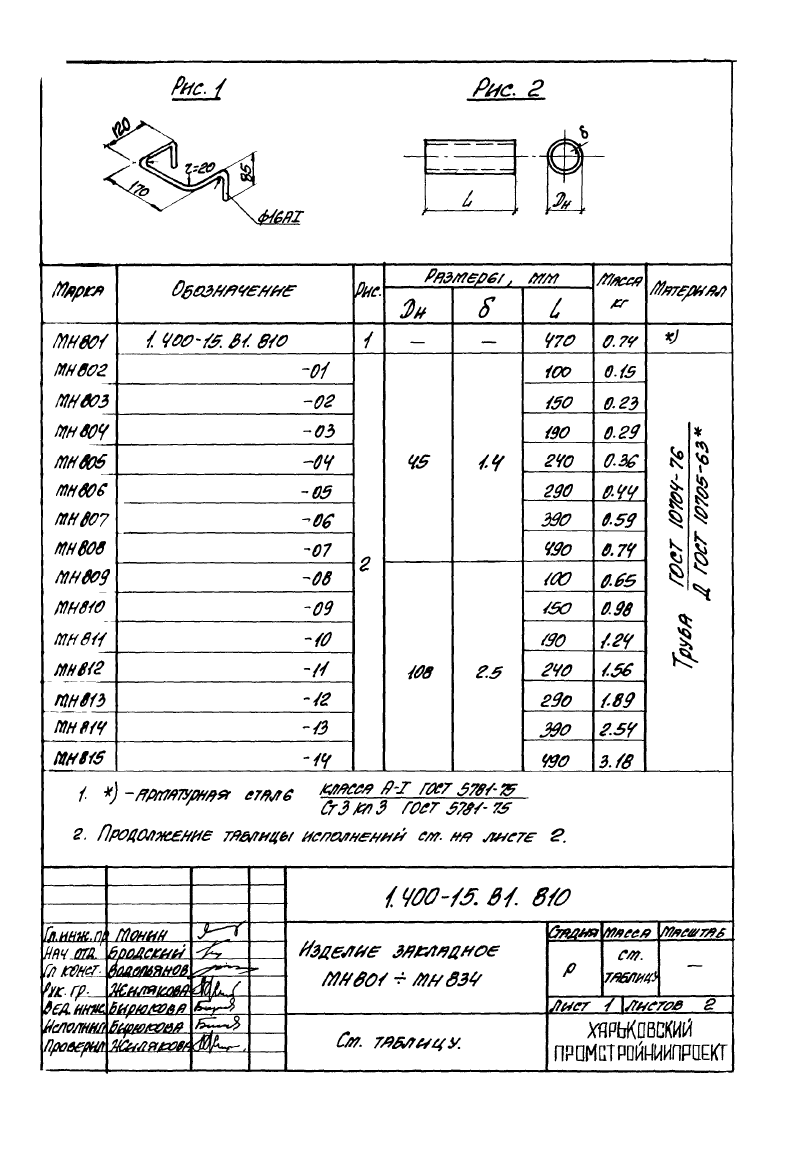 Рис. 1
Рис. 2
120
170
r=20
85
ф16АI
L
Dн
δ
Марка Обозначение Рис. Размеры, мм Масса кг Материал
Dн δ L
МН801 1.400-15.В1.810 1 — — 470 0.74 *)
МН802 -01 100 0.15
МН803 -02 150 0.23
МН804 -03 190 0.29
МН805 -04 45 1.4 240 0.36
МН806 -05 290 0.44
МН807 -06 390 0.59
МН808 -07 490 0.74
2
МН809 -08 100 0.65
МН810 -09 150 0.98
МН811 -10 190 1.24
МН812 -11 108 2.5 240 1.56
МН813 -12 290 1.89
МН814 -13 390 2.54
МН815 -14 490 3.18
Труба ГОСТ 10704-76
Д ГОСТ 10705-63*
1. *) - Арматурная сталь класса А-I ГОСТ 5781-75
Ст3кп3 ГОСТ 5781-75
2. Продолжение таблицы исполнений см. на листе 2.
1.400-15.В1.810
Гл.инж.пр Монин
Нач отд. Бродский
Гл конст. Водопьянов
Рук. гр. Жилякова
Вед. инж. Бирюкова
Исполнил Бирюкова
Проверил Жилякова
Изделие закладное
МН801 ÷ МН834
Стадия Масса Масштаб
Р см. таблицу —
Лист 1 Листов 2
См. таблицу.
ХАРЬКОВСКИЙ
ПРОМСТРОЙНИИПРОЕКТ